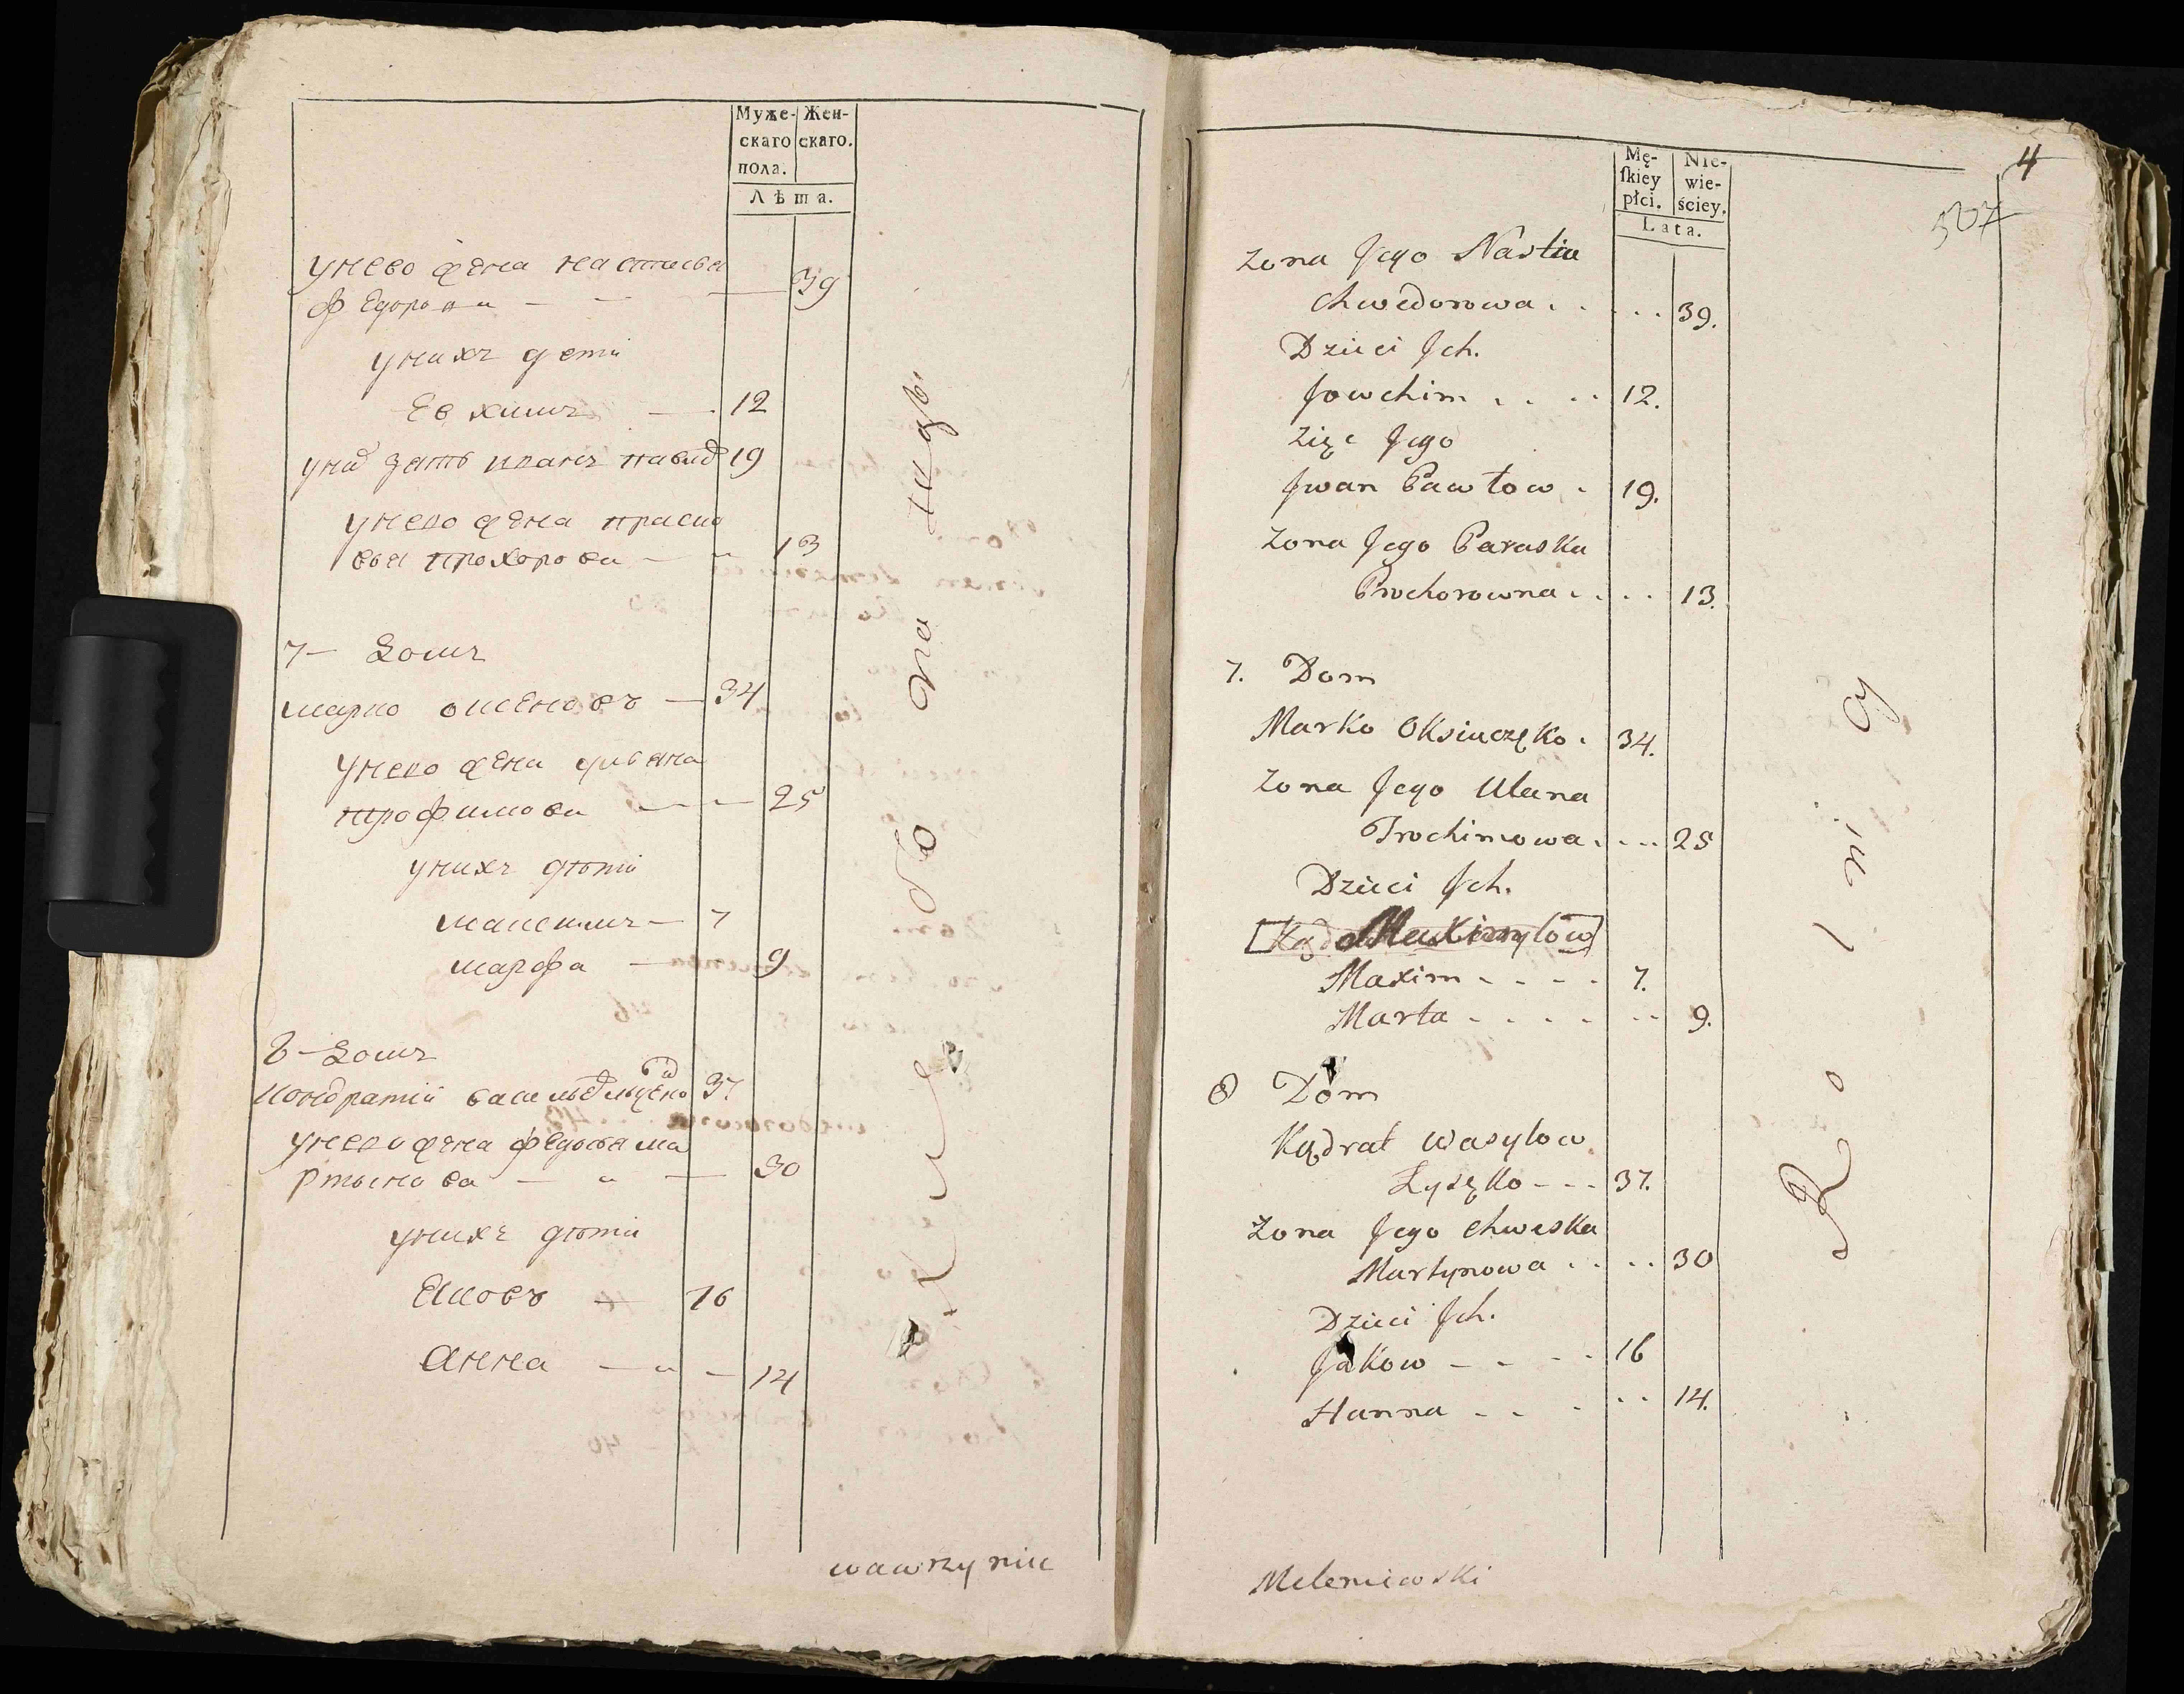 Муже-
скаго
пола.
Жен-
скаго.
Лѣта.
унево жена настасья
федорова 39
унихъ дети
Евхимъ 12
унихъ зять иванъ павлов 19
унево жена праско
вья прохорова 13
7 домъ
марко оксеновъ 34
унево жена ульяна
трофимова 25
унихъ дѣти
максимъ 7
марфа 9
8 домъ
кондратій 37
унево жена федосья ма
ртынова 30
унихъ дѣти
Яковъ 16
анна 14
wawrzyniec
4
507
Mę-
ſkiey
płci.
Nie-
wie-
ściey.
Lata.
Zona Jego Nastia
Chwedorowa . . . . . 39.
Dzieci Jch.
Jowchim . . . . 12.
Zięc Jego
Jwan Pawłow . 19.
Zona Jego Paraska
Prochorowna . . . . 13.
7. Dom
Marko Oksiuczęko . 34.
Zona Jego Ulana
Trochimowa . . . . 25
Dzieci Jch.
Maxim - - - - 7.
Marta - . . . . - - 9.
8 Dom
Kądrat Wasylow
Łysęko - - - 37.
Zona Jego Chweska
Martynowa . . . . 30
Dzieci Jch.
Jakow - - - - 16
Hanna - - - . . 14.
Meleniewski